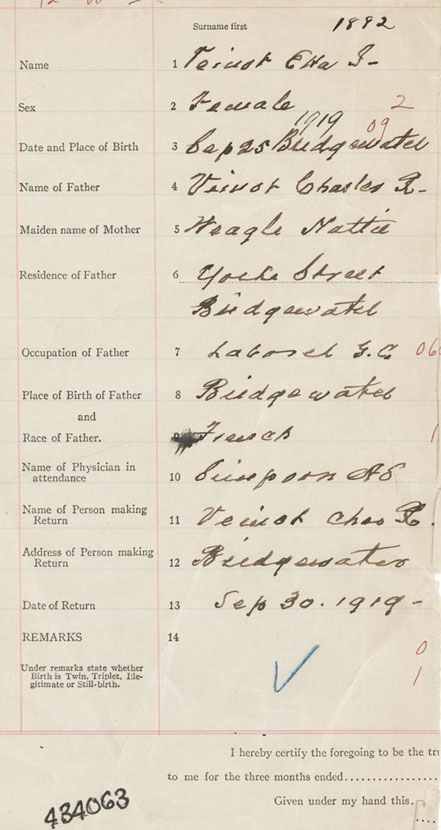 Surname first 1892
Name 1 Veinot Etta I-
Sex 2 Female 2
1919 09
Date and Place of Birth 3 Sep 25 Bridgewater
Name of Father 4 Veinot Charles R-
Maiden name of Mother 5 Weagle Nattie
Residence of Father 6 York Street
Bridgewater
Occupation of Father 7 Laborer G.C. 06
Place of Birth of Father 8 Bridgewater
and
Race of Father. 9 French 1
Name of Physician in
attendance 10 Simpson AE
Name of Person making
Return 11 Veinot Chas R.
Address of Person making
Return 12 Bridgewater
Date of Return 13 Sep 30. 1919-
REMARKS 14
0
Under remarks state whether
Birth is Twin, Triplet, Ille-
gitimate or Still-birth.
1
I hereby certify the foregoing to be the
to me for the three months ended
Given under my hand this
434063